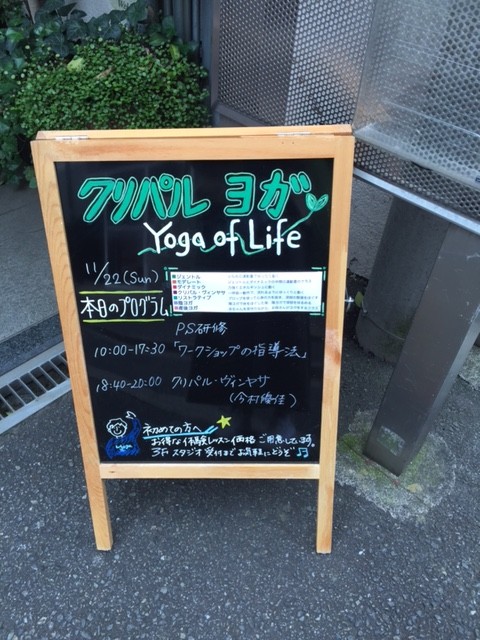 クリパル ヨガ
Yoga of Life
11/22(Sun)
本日のプログラム
■ジェントル
■モデレート
■ダイナミック
■クリパル・ヴィンヤサ
■リストラティブ
PS研修
10:00-17:30 「ワークショップの指導法」
18:40-20:00 クリパル・ヴィンヤサ
初めての方へ
お得な体験レッスン価格ご用意してます。
3Fスタジオ受付までお気軽にどうぞ♫